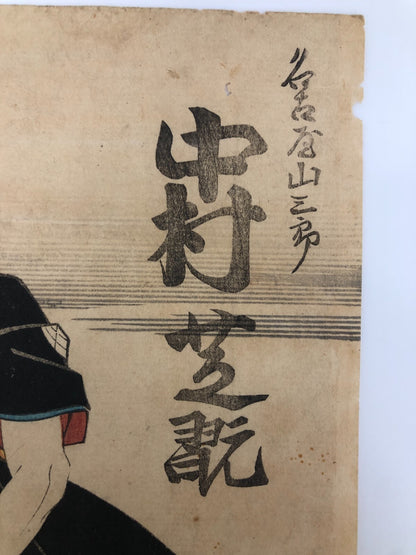 名古屋山三郎
中村芝翫